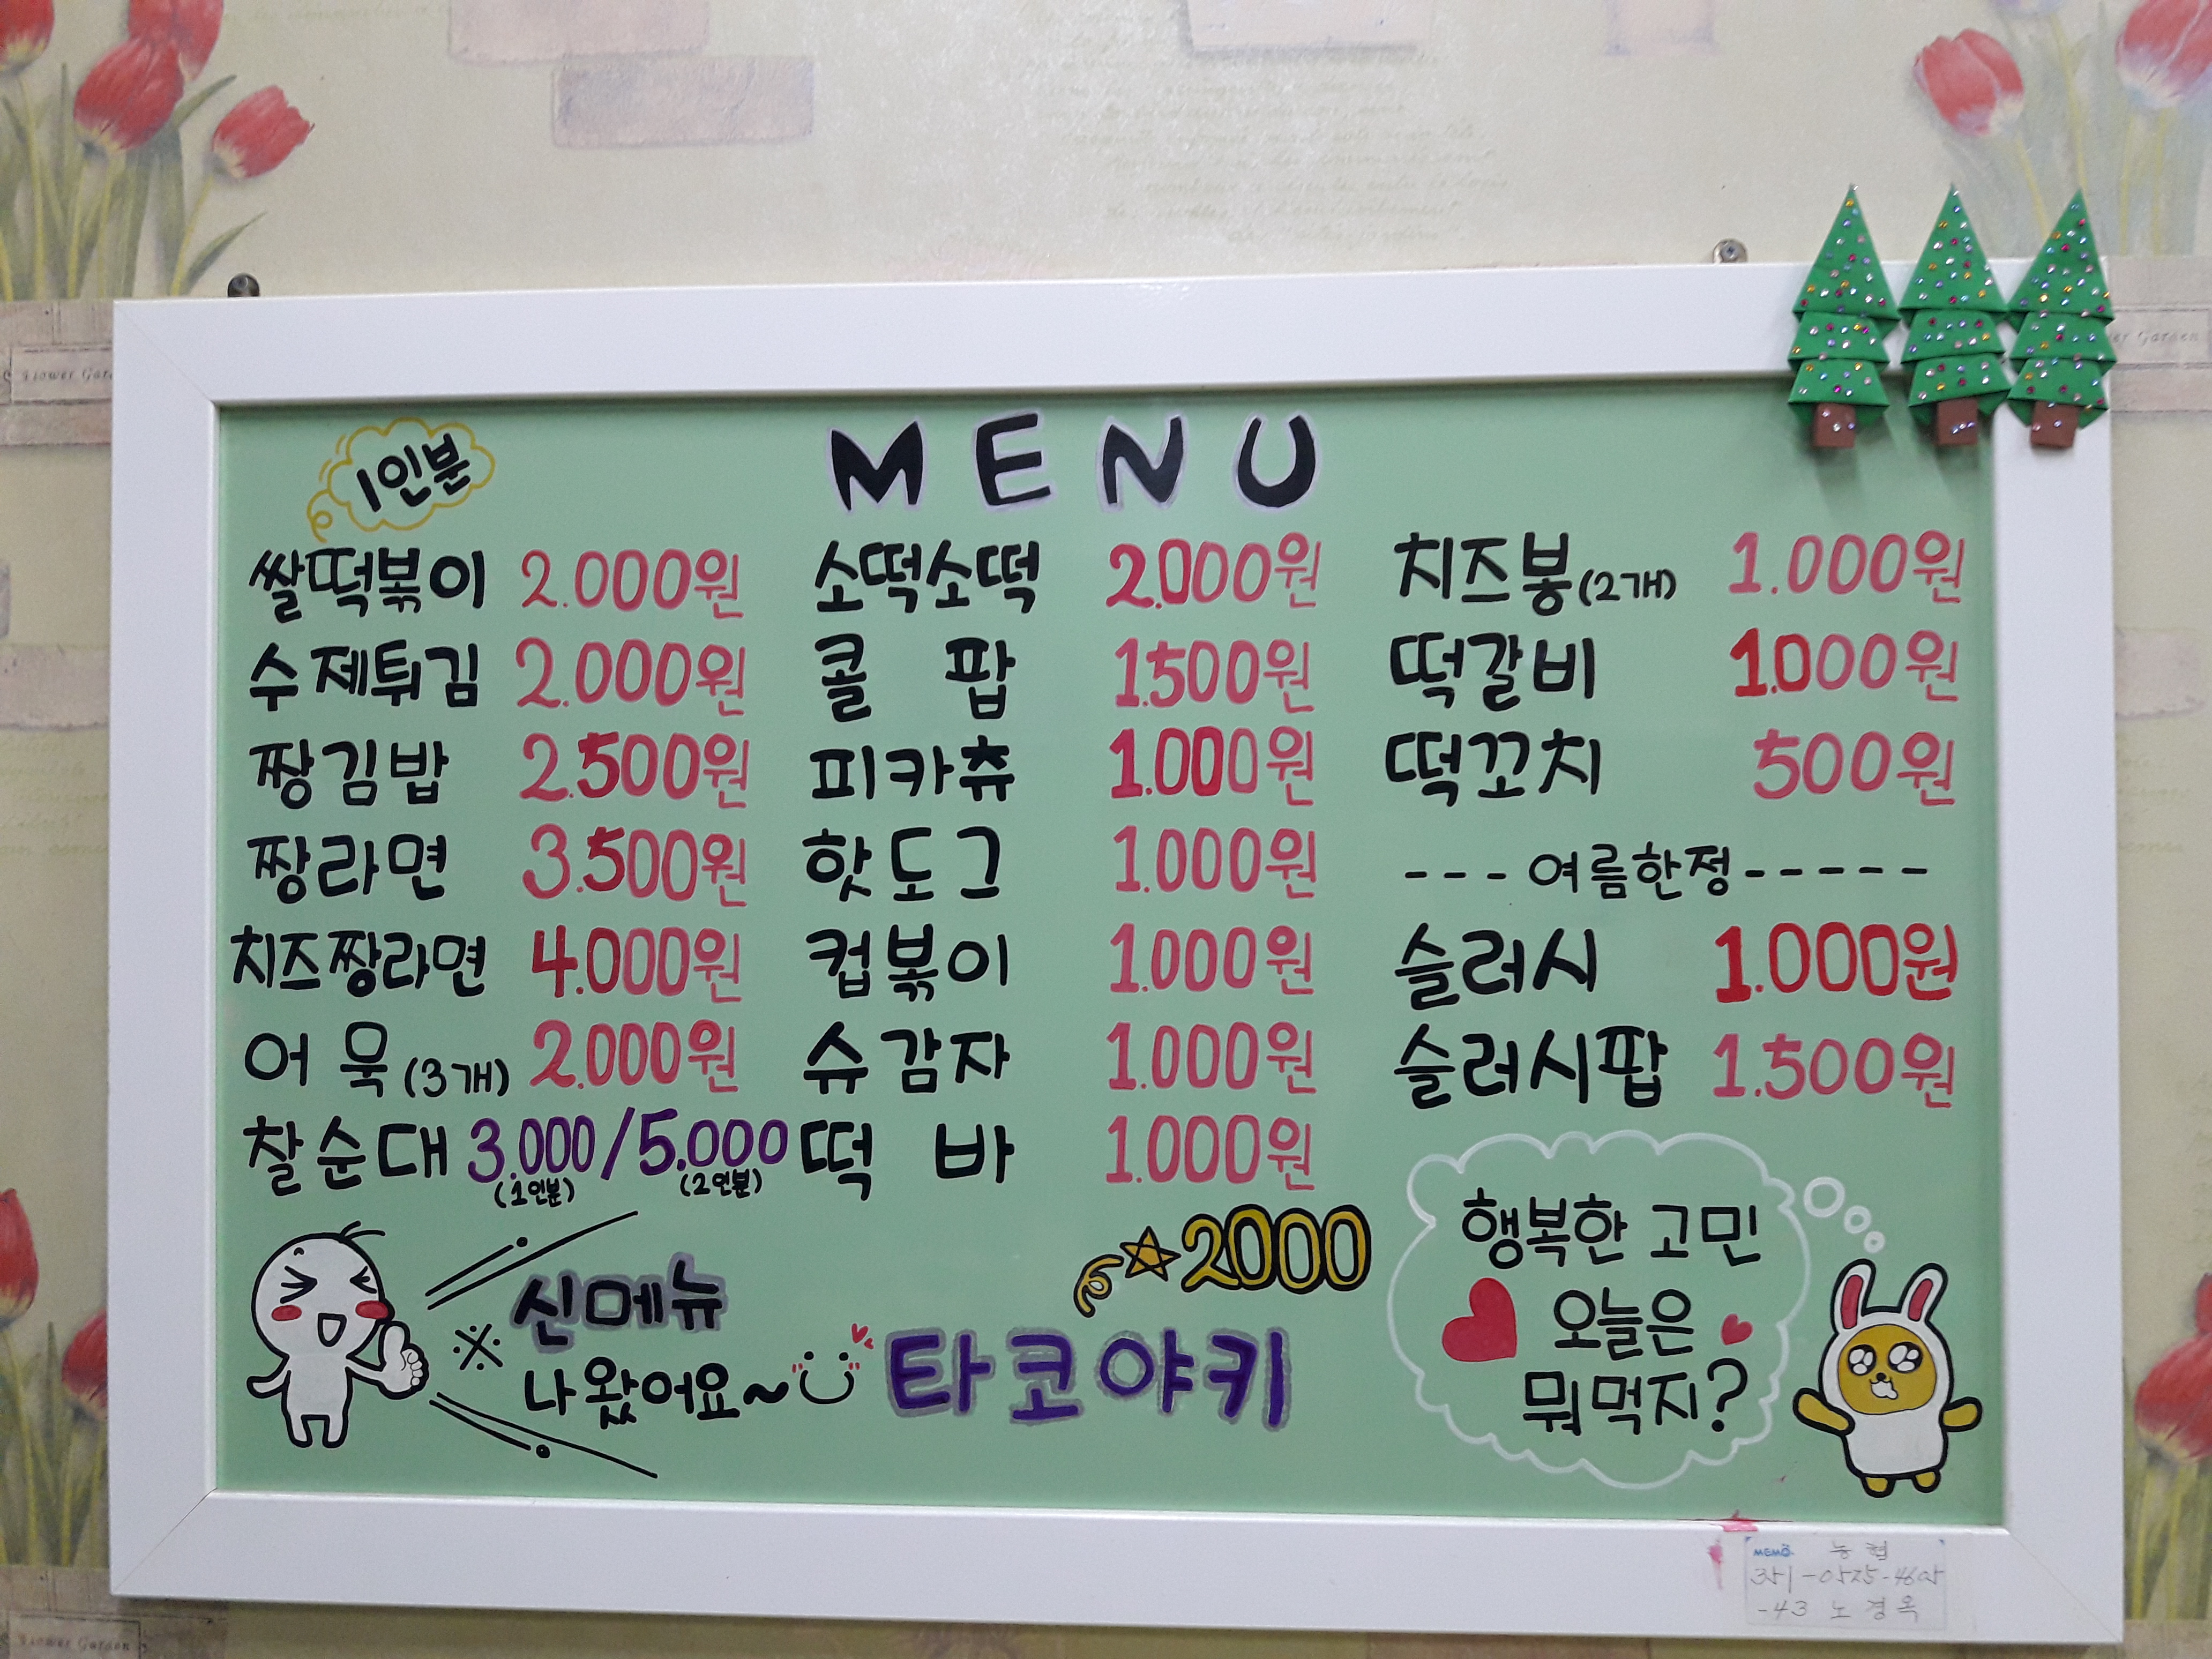 MENU
1인분
쌀떡볶이 2.000원
수제튀김 2.000원
짱김밥 2.500원
짱라면 3.500원
치즈짱라면 4.000원
어묵(3개) 2.000원
찰순대 3.000/5.000
(1인분) (2인분)
소떡소떡 2.000원
콜 팝 1.500원
피카츄 1.000원
핫도그 1.000원
컵볶이 1.000원
슈감자 1.000원
떡 바 1.000원
치즈봉(2개) 1.000원
떡갈비 1.000원
떡꼬치 500원
---여름한정-----
슬러시 1.000원
슬러시팝 1.500원
※ 신메뉴
나왔어요~
2000
타코야키
행복한 고민
오늘은
뭐먹지?
MEMO 농협
351-0525-4605
-43 노경옥
Flower Garden